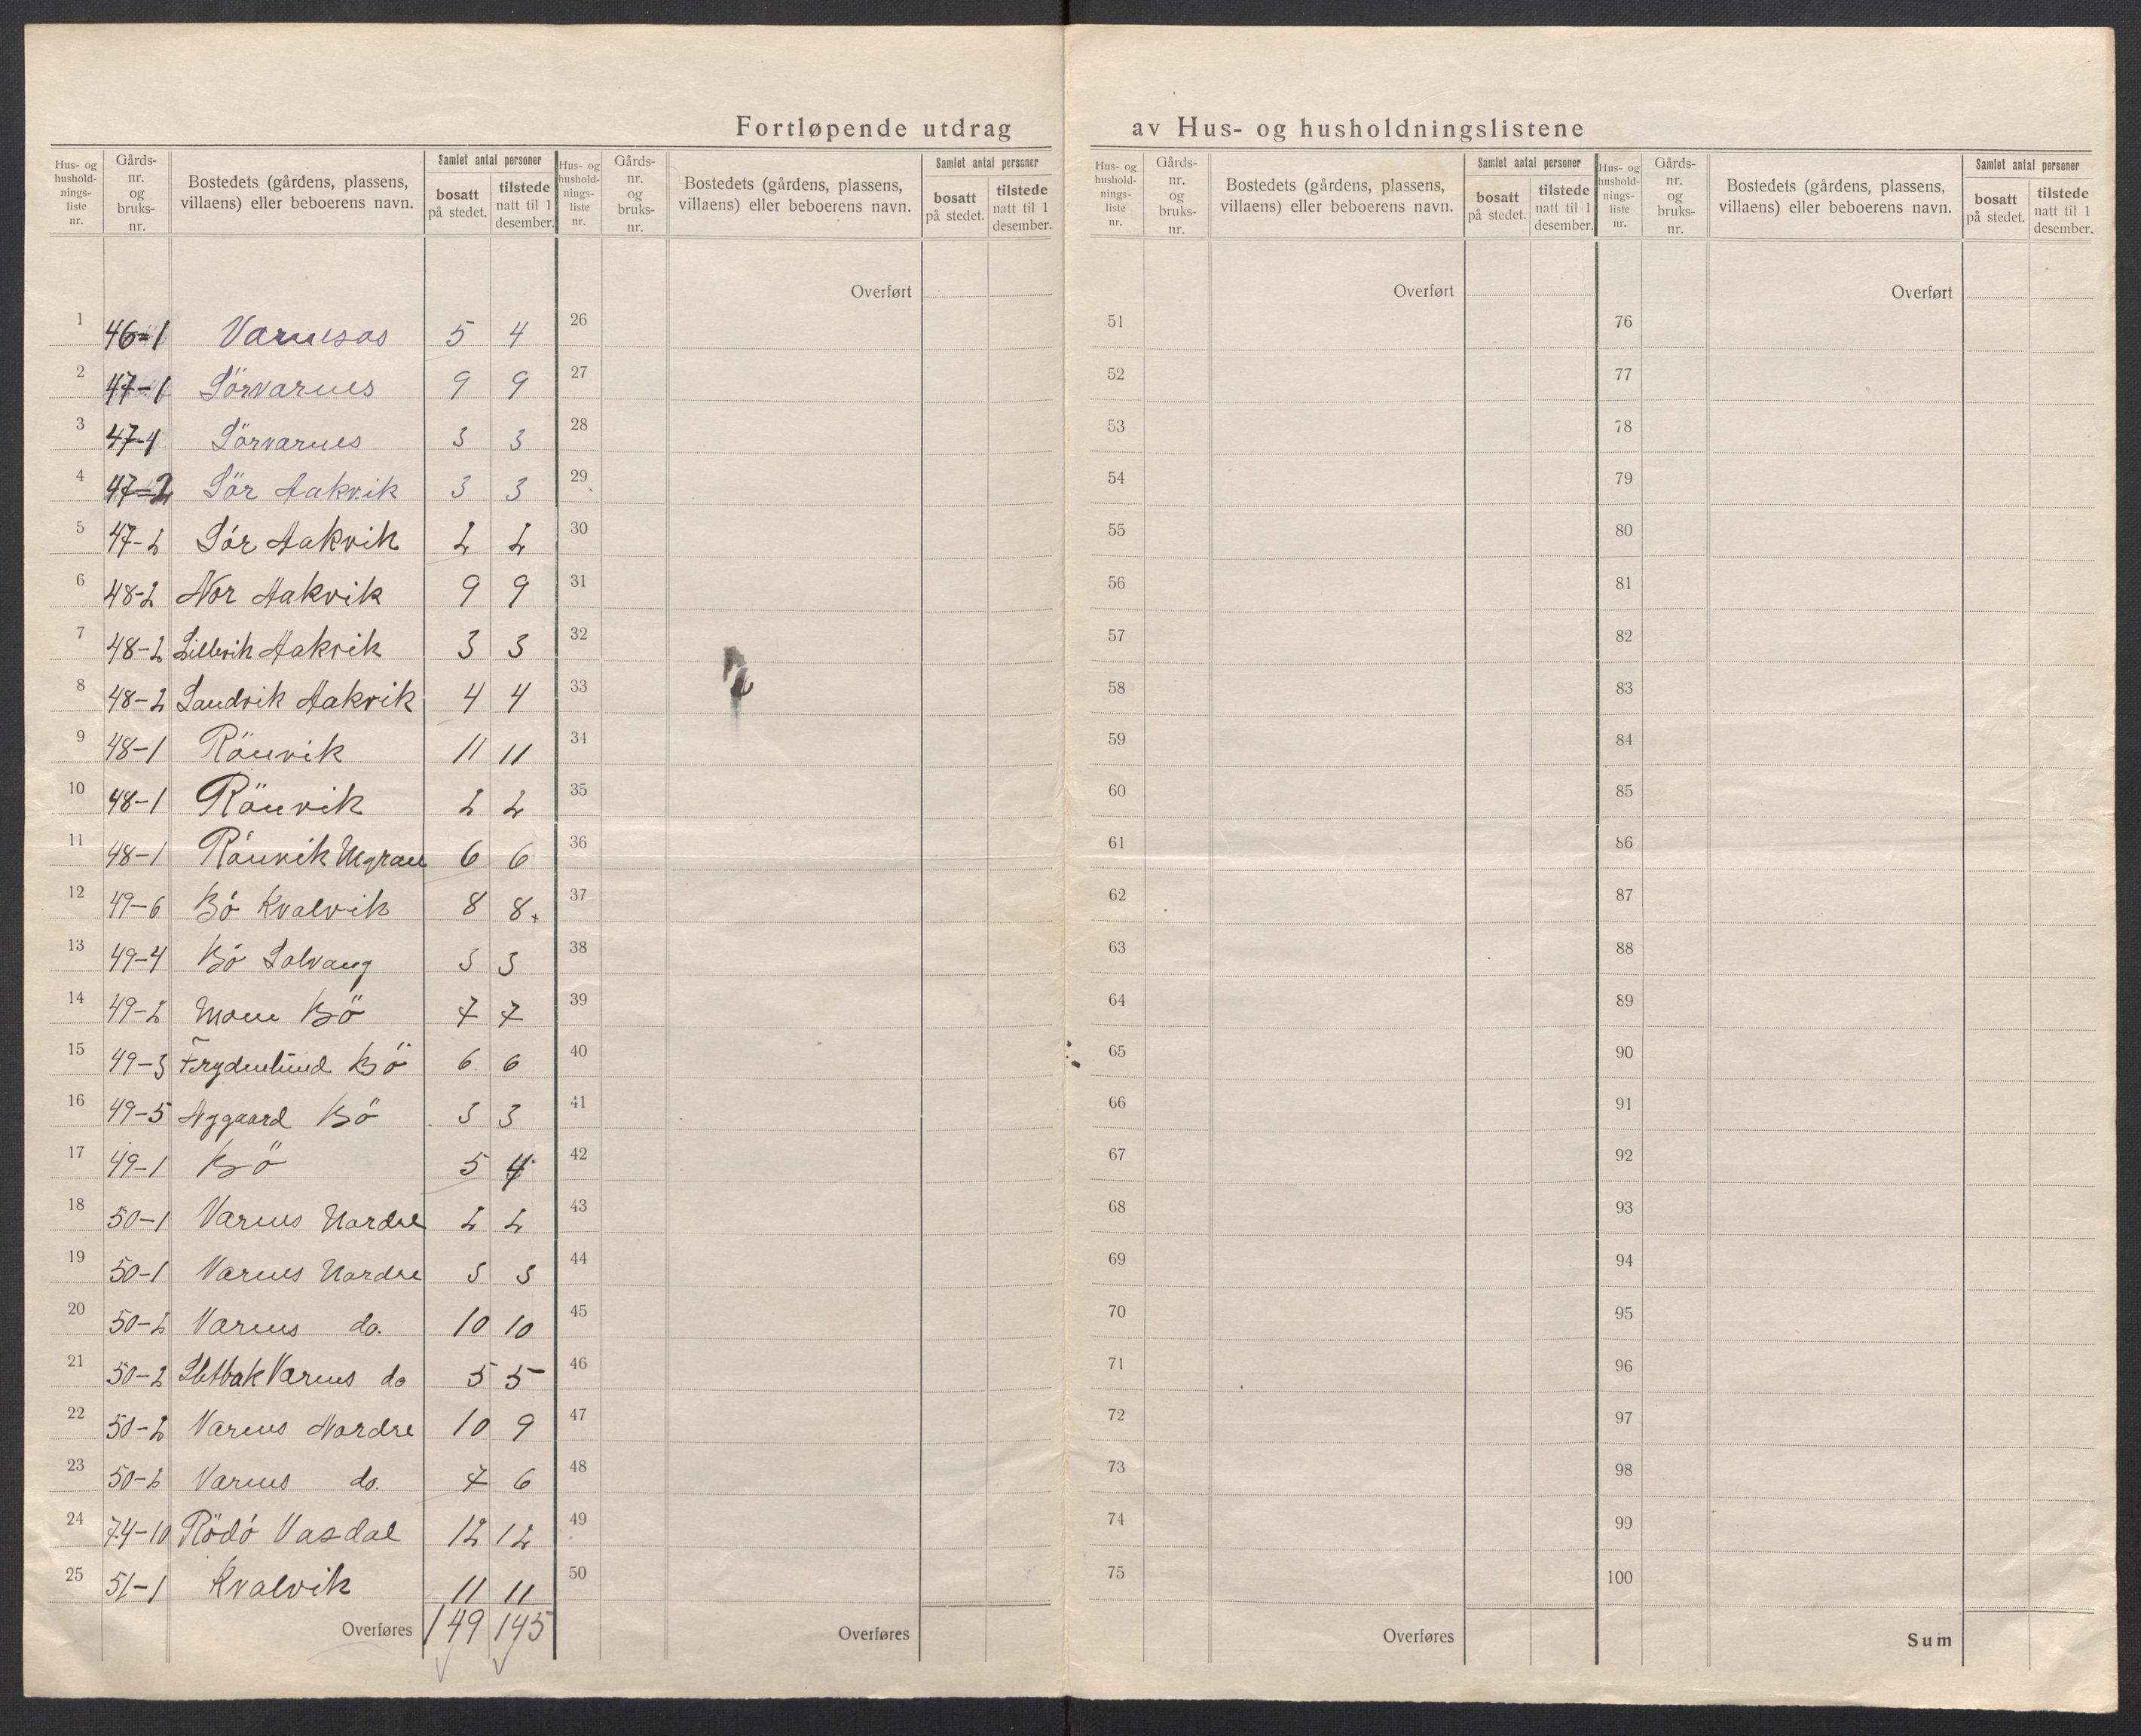 Fortløpende utdrag av Hus- og husholdningslistene
Hus- og hushold-nings-liste nr. Gårds-nr. og bruks-nr. Bostedets (gårdens, plassens, villaens) eller beboerens navn. Samlet antal personer bosatt på stedet. tilstede natt til 1 desember.
1 46-1 Varnesos 5 4
2 47-1 Sörvarnes 9 9
3 47-1 Sörvarnes 3 3
4 47-2 Sör Aakvik 3 3
5 47-2 Sör Aakvik 2 2
6 48-2 Nor Aakvik 9 9
7 48-2 Lillevik Aakvik 3 3
8 48-2 Sandvik Aakvik 4 4
9 48-1 Rönvik 11 11
10 48-1 Rönvik 2 2
11 48-1 Rönvik 6 6
12 49-6 Bö Kvalvik 8 8
13 49-4 Bö Solvang 3 3
14 49-2 Moen Bö 7 7
15 49-3 Frydenlund Bö 6 6
16 49-5 Nygaard Bö 3 3
17 49-1 Bö 5 4
18 50-1 Varnes Nordre 2 2
19 50-1 Varnes Nordre 3 3
20 50-2 Varnes do. 10 10
21 50-2 Sletbak Varnes do 5 5
22 50-2 Varnes Nordre 10 9
23 50-2 Varnes do. 7 6
24 74-10 Rödö Vasdal 12 12
25 51-1 Kvalvik 11 11
Overføres 149 145
Hus- og hushold-nings-liste nr. Gårds-nr. og bruks-nr. Bostedets (gårdens, plassens, villaens) eller beboerens navn. Samlet antal personer bosatt på stedet. tilstede natt til 1 desember.
Overført
26
27
28
29
30
31
32
33
34
35
36
37
38
39
40
41
42
43
44
45
46
47
48
49
50
Overføres
Hus- og hushold-nings-liste nr. Gårds-nr. og bruks-nr. Bostedets (gårdens, plassens, villaens) eller beboerens navn. Samlet antal personer bosatt på stedet. tilstede natt til 1 desember.
Overført
51
52
53
54
55
56
57
58
59
60
61
62
63
64
65
66
67
68
69
70
71
72
73
74
75
Overføres
Hus- og hushold-nings-liste nr. Gårds-nr. og bruks-nr. Bostedets (gårdens, plassens, villaens) eller beboerens navn. Samlet antal personer bosatt på stedet. tilstede natt til 1 desember.
Overført
76
77
78
79
80
81
82
83
84
85
86
87
88
89
90
91
92
93
94
95
96
97
98
99
100
Sum